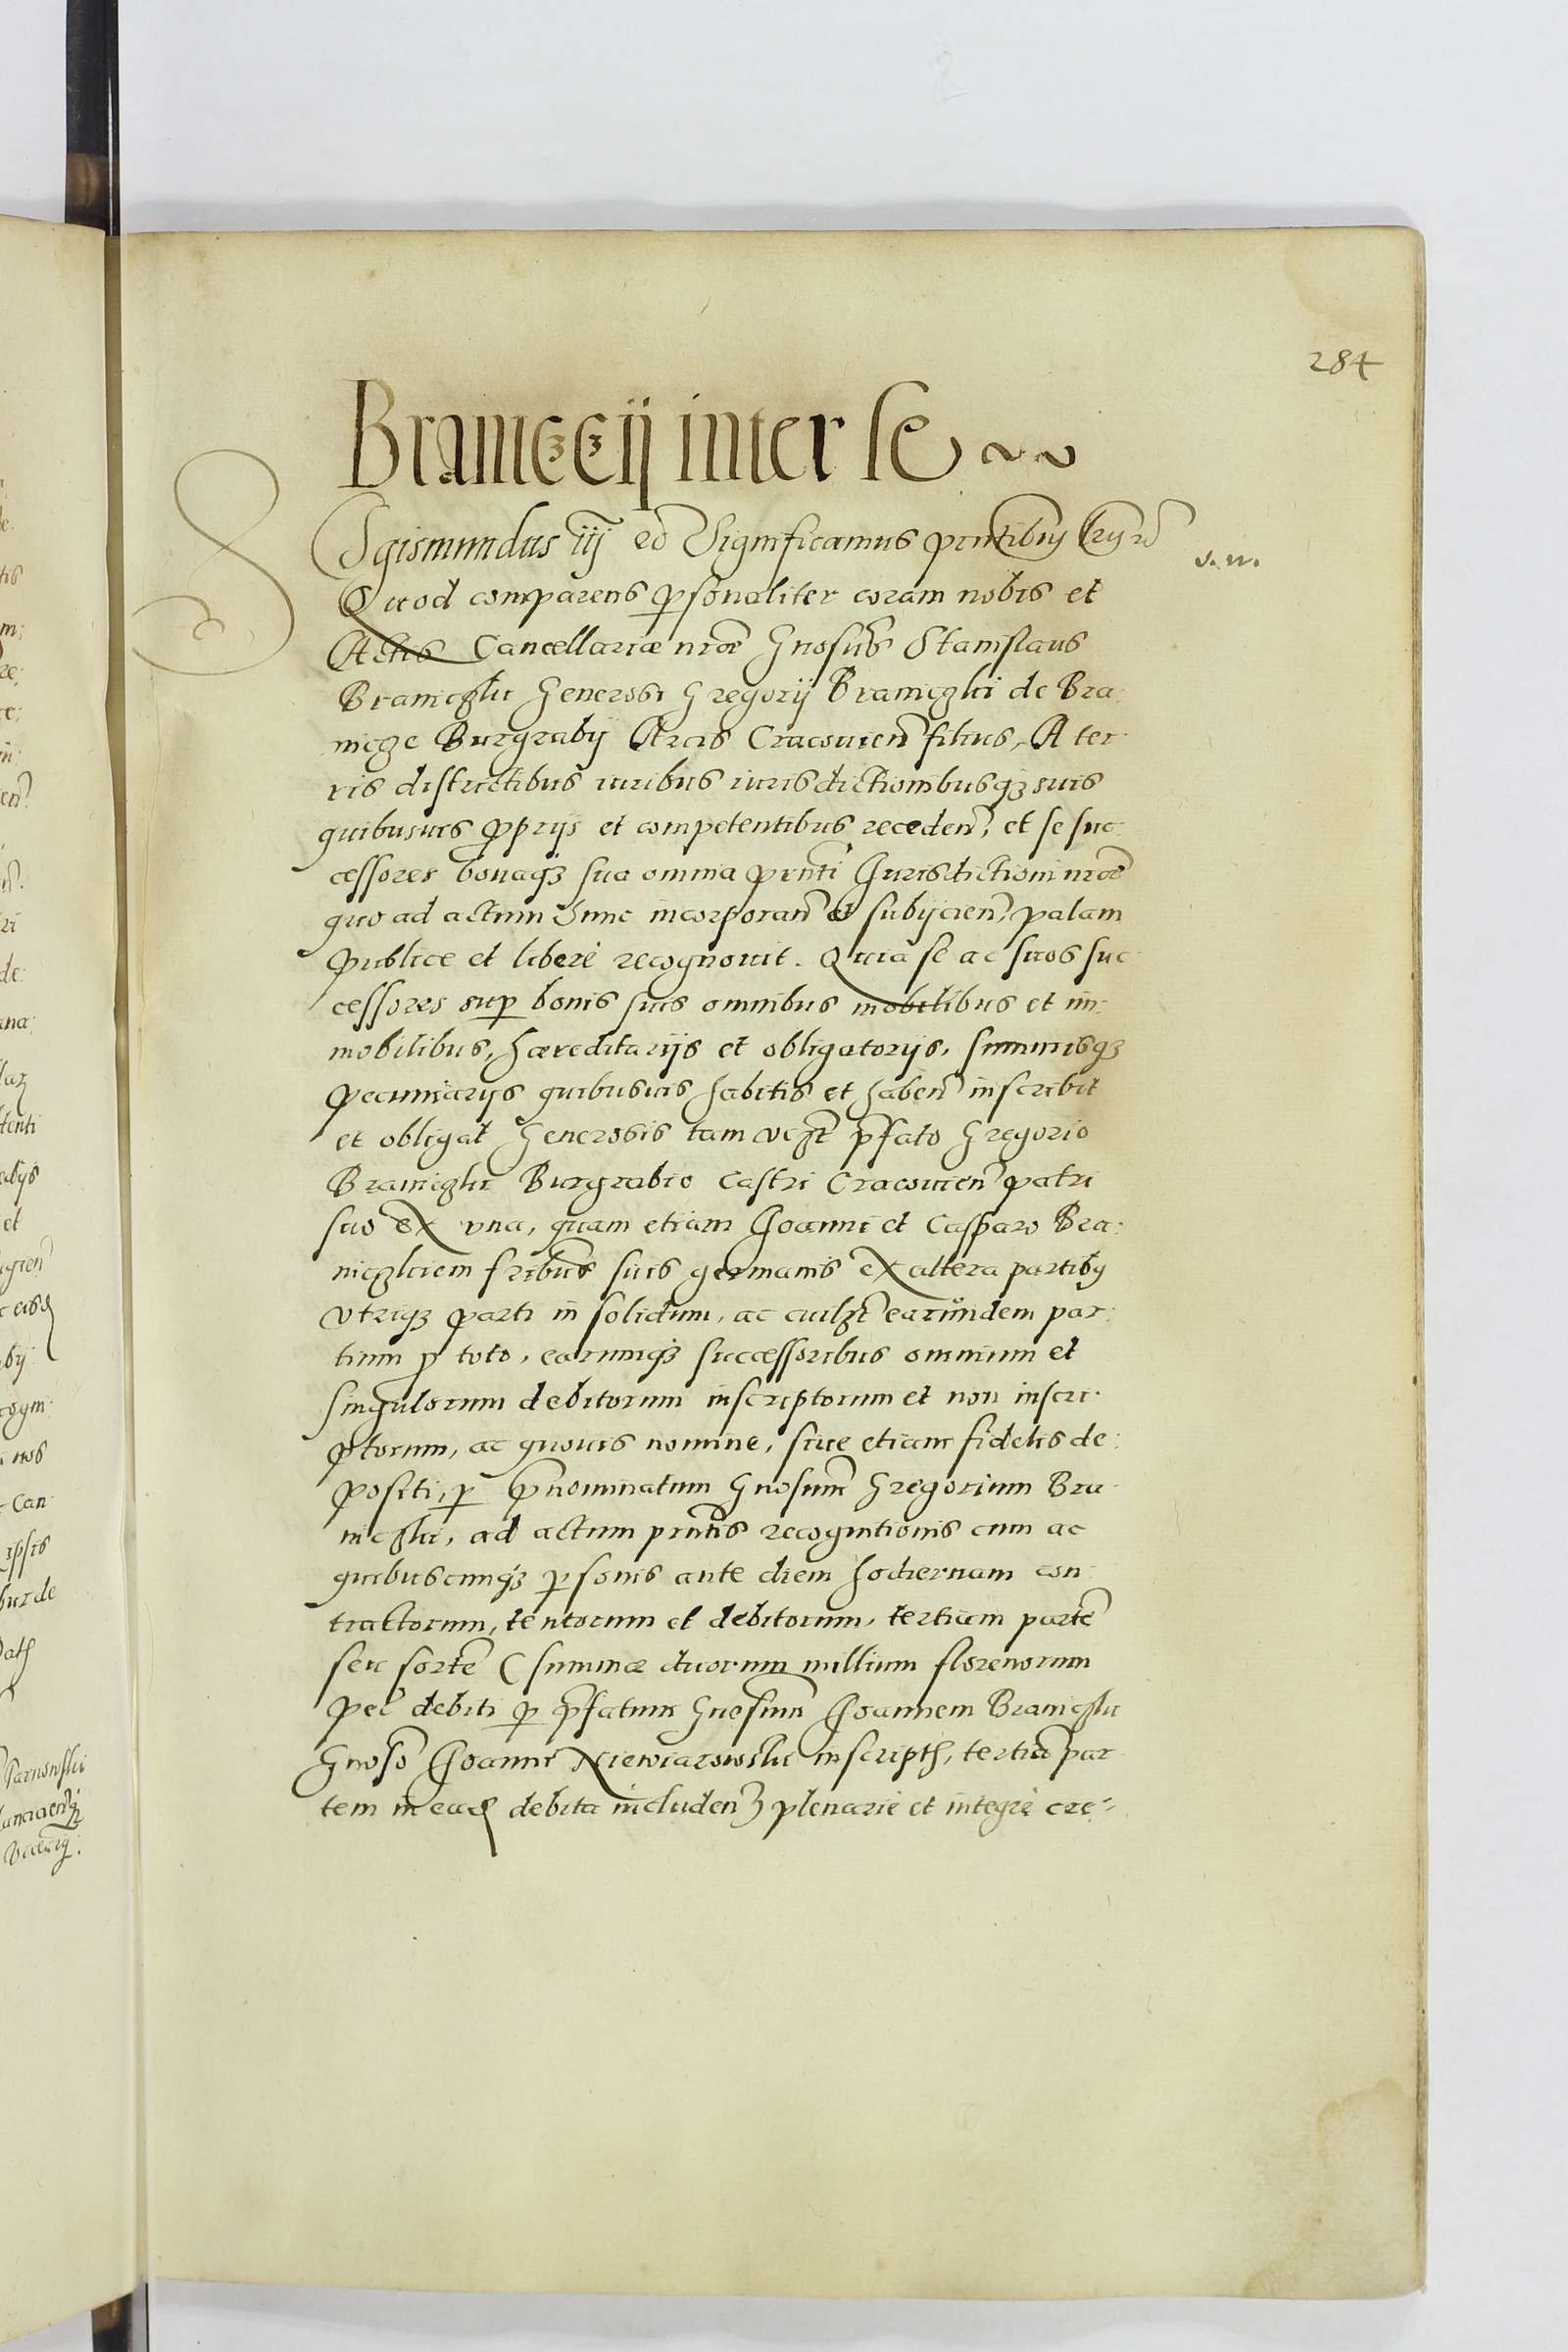 284
Braniczcij inter se
Sigismundus iij etc Significamus pntibus
s. n.
Quod comparens psonaliter coram nobis et
Actis Cancellariæ nræ Gnosus Stanislaus
Braniczki Generosi Gregorij Braniczki de Bra
nicze Burgrabij Arcis Cracouien filius, A ter
ris districtibus iuribus iurisdictionibusqz suis
quibusuis pprijs et competentibus receden, et se suc
cessores bonaqz sua omnia pnti Iurisdictioni nræ
quo ad actum hunc incorporan et subijcien, palam
publice et liberè recognouit. Quia se ac suos suc
cessores sup bonis suis omnibus mobilibus et im
mobilibus, hæreditarijs et obligatorijs, summisqz
pecuniarijs quibusuis habitis et haben inscribit
et obligat Generosis tam vczt pfato Gregorio
Braniczki Burgrabio Castri Cracouien patri
suo ex vna, quam etiam Joanni et Casparo Bra
niczkiem fribus suis germanis ex altera partibus
vtriqz parti in solidum, ac cuilzt earundem par
tium p toto, earumqz successoribus omnium et
singulorum debitorum inscriptorum et non inscri
ptorum, ac quouis nomine, siue etiam fidelis de
positi, p pnominatum Gnosum Gregorium Bra
niczki, ad actum pntis recognitionis cum ac
quibuscunqz psonis ante diem hodiernam con
tractorum, tentorum et debitorum, tertiam parte
seu sorte (summæ duorum millium florenorum
pel debiti p pfatum Gnesum Joannem Braniczki
Gnoso Joanni Niewiarowski inscript, tertia par
tem in ead debita includen) plenarie et integrè cre